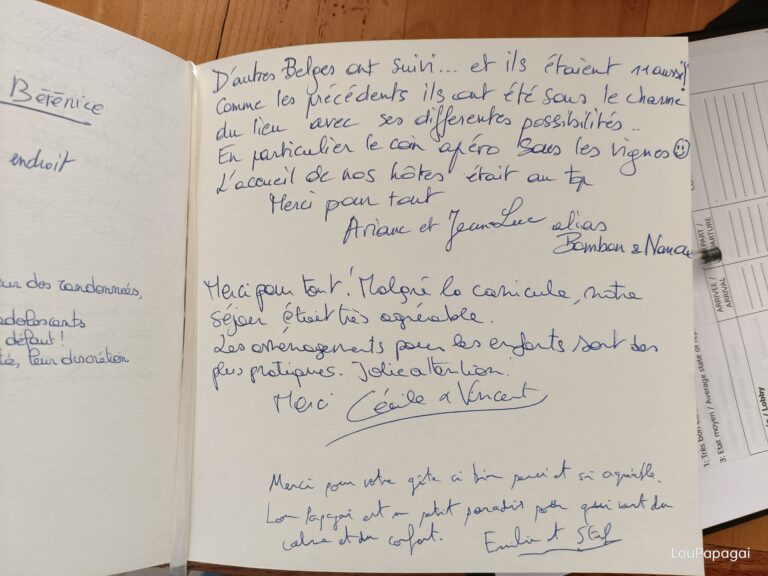 Bérénice
endroit
ur des randonnées,
adolescents
défaut !
té, leur discrétion
D'autres Belges ont suivi... et ils étaient 11 aussi !
Comme les précédents ils ont été sous le charme
du lieu avec ses differentes possibilités..
En particulier le coin apéro sous les vignes
L'accueil de nos hôtes était au top
Merci pour tout
Ariane et Jean-Luc alias
Bombon &
Merci pour tout ! Malgré la canicule, notre
séjour était très agréable.
Les aménagements pour les enfants sont des
plus pratiques. Jolie attention.
Merci Cécile & Vincent
Merci pour votre gîte si bien pensé et si agréable.
Lou Papagai est un petit paradis pour qui veut du
calme et du confort. Emilie et Stef
ARRIVÉE /
ARRIVAL
3: Etat moyen / Average state of
/ Lobby
LouPapagai